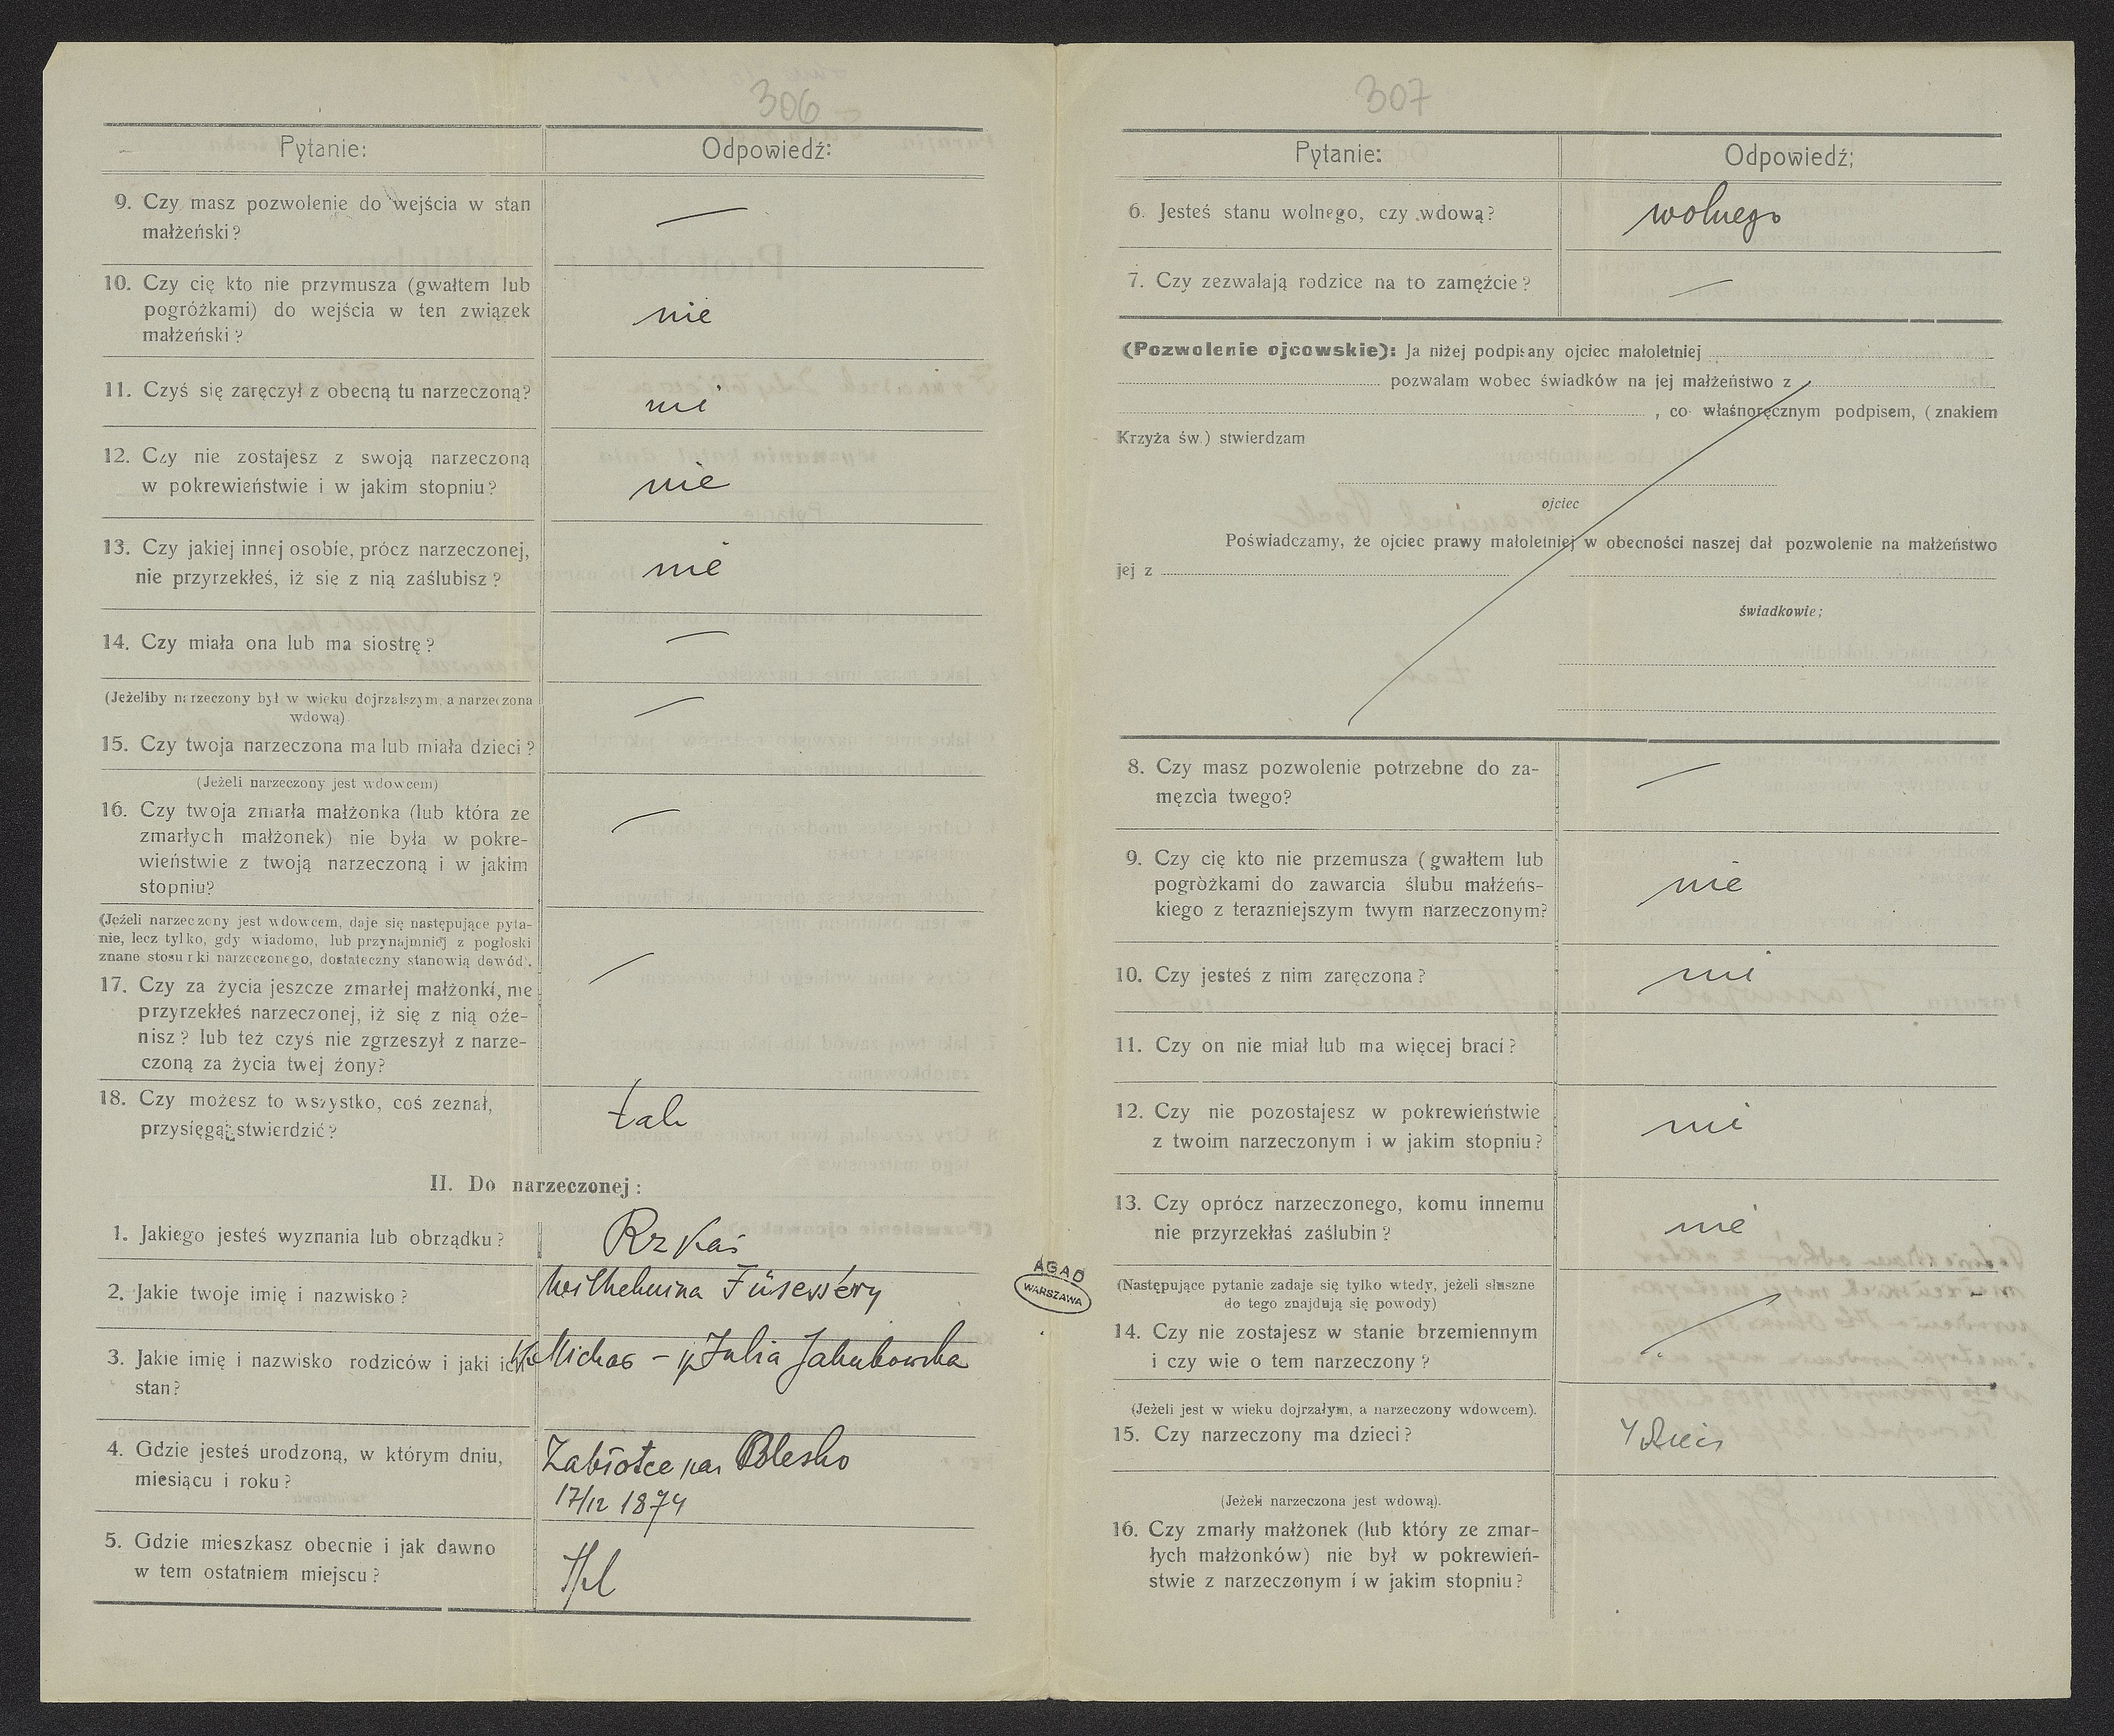 306
Pytanie:
Odpowiedź:
9. Czy masz pozwolenie do wejścia w stan
małżeński?
—
10. Czy cię kto nie przymusza (gwałtem lub
pogróżkami) do wejścia w ten związek
małżeński?
nie
11. Czyś się zaręczył z obecną tu narzeczoną?
nie
12. Czy nie zostajesz z swoją narzeczoną
w pokrewieństwie i w jakim stopniu?
nie
13. Czy jakiej innej osobie, prócz narzeczonej,
nie przyrzekłeś, iż się z nią zaślubisz?
nie
14. Czy miała ona lub ma siostrę?
—
(Jeżeliby narzeczony był w wieku dojrzalszym, a narzeczona
wdową)
15. Czy twoja narzeczona ma lub miała dzieci?
—
(Jeżeli narzeczony jest wdowcem)
16. Czy twoja zmarła małżonka (lub która ze
zmarłych małżonek) nie była w pokre-
wieństwie z twoją narzeczoną i w jakim
stopniu?
—
(Jeżeli narzeczony jest wdowcem, daje się następujące pyta-
nie, lecz tylko, gdy wiadomo, lub przynajmniej z pogłoski
znane stosunki narzeczonego, dostateczny stanowią dowód).
17. Czy za życia jeszcze zmarłej małżonki, nie
przyrzekłeś narzeczonej, iż się z nią oże-
nisz? lub też czyś nie zgrzeszył z narze-
czoną za życia twej żony?
—
18. Czy możesz to wszystko, coś zeznał,
przysięgą stwierdzić?
tak
II. Do narzeczonej:
1. Jakiego jesteś wyznania lub obrządku?
Rz kat
2. Jakie twoje imię i nazwisko?
Wilhelmina
3. Jakie imię i nazwisko rodziców i jaki ich
stan?
Michał – Julia Jakubowska
4. Gdzie jesteś urodzoną, w którym dniu,
miesiącu i roku?
Zabłotce Olesko
17/12 1874
5. Gdzie mieszkasz obecnie i jak dawno
w tem ostatniem miejscu?
AGAD
WARSZAWA
307
Pytanie:
Odpowiedź;
6. Jesteś stanu wolnego, czy wdową?
wolnego
7. Czy zezwalają rodzice na to zamęźcie?
—
(Pozwolenie ojcowskie): Ja niżej podpisany ojciec małoletniej
pozwalam wobec świadków na jej małżeństwo z
, co własnoręcznym podpisem, (znakiem
Krzyża św.) stwierdzam
ojciec
Poświadczamy, że ojciec prawy małoletniej w obecności naszej dał pozwolenie na małżeństwo
jej z
świadkowie;
8. Czy masz pozwolenie potrzebne do za-
męzcia twego?
—
9. Czy cię kto nie przemusza (gwałtem lub
pogròżkami do zawarcia ślubu małżeńs-
kiego z terazniejszym twym narzeczonym?
nie
10. Czy jesteś z nim zaręczona?
nie
11. Czy on nie miał lub ma więcej braci?
12. Czy nie pozostajesz w pokrewieństwie
z twoim narzeczonym i w jakim stopniu?
nie
13. Czy oprócz narzeczonego, komu innemu
nie przyrzekłaś zaślubin?
nie
(Następujące pytanie zadaje się tylko wtedy, jeżeli słuszne
do tego znajdują się powody)
14. Czy nie zostajesz w stanie brzemiennym
i czy wie o tem narzeczony?
(Jeżeli jest w wieku dojrzałym, a narzeczony wdowcem).
15. Czy narzeczony ma dzieci?
(Jeżeli narzeczona jest wdową).
16. Czy zmarły małżonek (lub który ze zmar-
łych małżonków) nie był w pokrewień-
stwie z narzeczonym i w jakim stopniu?